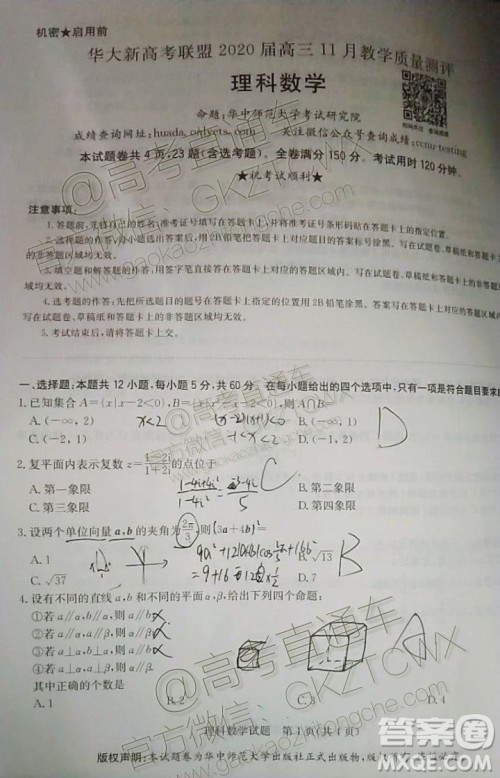 机密★启用前
华大新高考联盟2020届高三11月教学质量测评
理科数学
命题:华中师范大学考试研究院
成绩查询网址:huada.onlyets.com 关注微信公众号查询成绩:ccnu-testing
本试题卷共4页,23题(含选考题)。全卷满分150分。考试用时120分钟。
★祝考试顺利★
注意事项:
1.答题前,先将自己的姓名、准考证号填写在答题卡上,并将准考证号条形码粘贴在答题卡上的指定位置。
2.选择题的作答:每小题选出答案后,用2B铅笔把答题卡上对应题目的答案标号涂黑。写在试题卷、草稿纸和答题卡上的非答题区域均无效。
3.填空题和解答题的作答:用签字笔直接答在答题卡上对应的答题区域内。写在试题卷、草稿纸和答题卡上的非答题区域均无效。
4.选考题的作答:先把所选题目的题号在答题卡上指定的位置用2B铅笔涂黑。答案写在答题卡上对应的答题区域内,写在试题卷、草稿纸和答题卡上的非答题区域均无效。
5.考试结束后,请将答题卡上交。
一、选择题:本题共12小题,每小题5分,共60分。在每小题给出的四个选项中,只有一项是符合题目要求的。
1.已知集合A={x|x-2<0},B={x|x²-x-2<0},则A∩B=
A.(-∞,2) B.(-∞,1)
C.(-2,1) D.(-1,2)
x<2 (x-2)(x+1)<0
-1<x<2
D
2.复平面内表示复数z=(1-2i)/(1+2i)的点位于
A.第一象限 B.第二象限
C.第三象限 D.第四象限
C
3.设两个单位向量a,b的夹角为2π/3,则|3a+4b|=
A.1 B.√13
C.√37 D.7
B
4.设有不同的直线a,b和不同的平面α,β,给出下列四个命题:
①若a∥α,b∥α,则a∥b
②若a∥α,a∥β,则α∥β
③若a⊥α,b⊥α,则a∥b
④若a⊥α,a⊥β,则α∥β
其中正确的个数是
A.1 B.2 C.3 D.4
理科数学试题 第1页(共4页)
版权声明:本试题卷为华中师范大学出版社正式出版物,版
@高考直通车
官方微信:GKZTCWX
www.gaokaozhitongche.com
答案圈